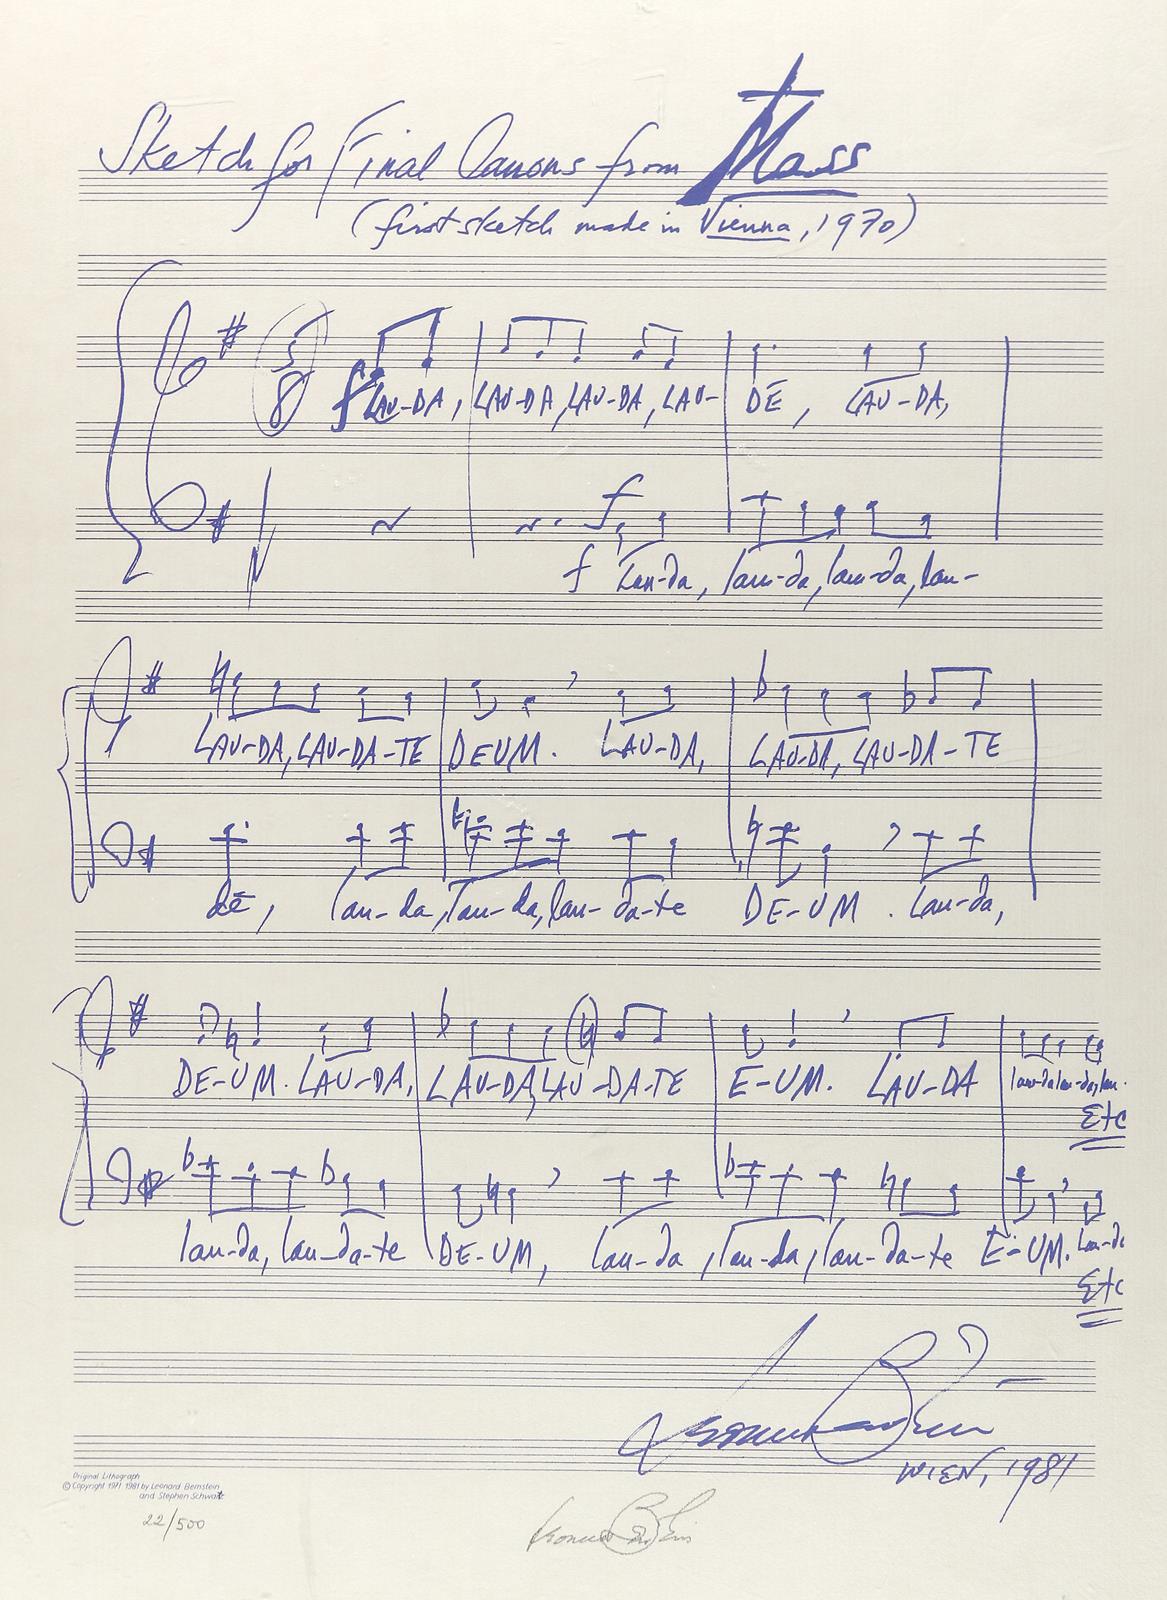 Sketch for Final Canons from Mass
(first sketch made in Vienna, 1970)
5
8
f LAU-DA, LAU-DA, LAU-DA, LAU- DE, LAU-DA,
f
f Lau-da, lau-da, lau-da, lau-
LAU-DA, LAU-DA-TE DEUM. LAU-DA, LAU-DA, LAU-DA-TE
dē, lau-da, lau-da, lau-da-te DE-UM. Lau-da,
DE-UM. LAU-DA, LAU-DA, LAU-DA-TE E-UM. LAU-DA lau-da lau-da, lau.
Etc
lau-da, lau-da-te DE-UM, lau-da, lau-da, lau-da-te E-UM. Lau-da
Etc
Leonard Bernstein
WIEN, 1981
Original Lithograph
© Copyright 1971 1981 by Leonard Bernstein
and Stephen Schwartz
22/500
Leonard Bernstein